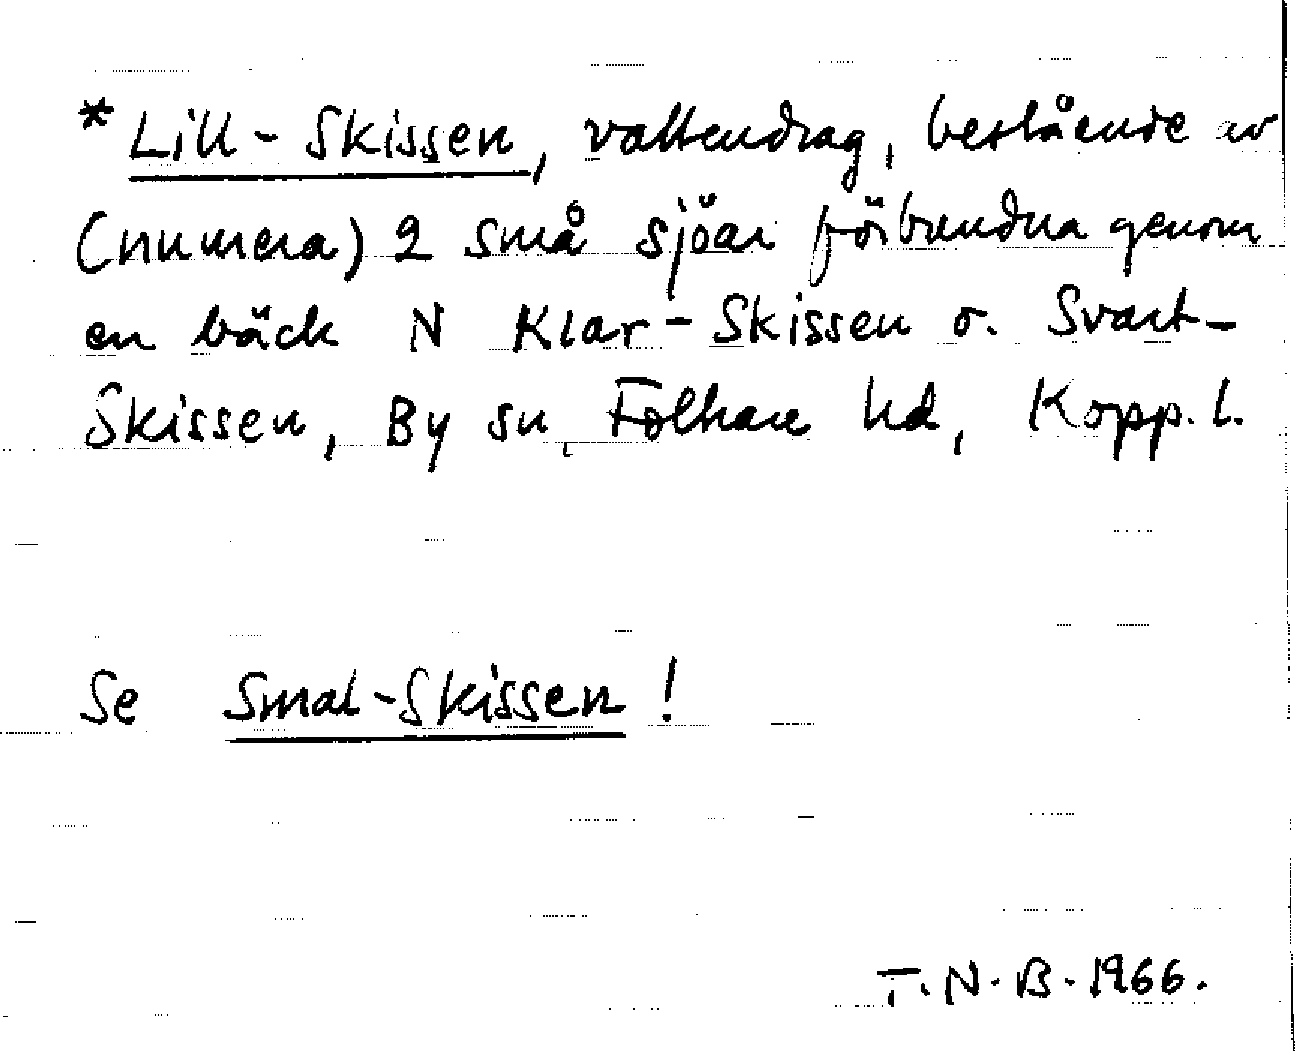 * Lill-Skissen, vattendrag, bestående av
(numera) 2 små sjöar förbundna genom
en bäck N Klar-Skissen o. Svart-
Skissen, By sn, Folkare hd, Kopp. l.
Se Smal-Skissen!
T.N.B. 1966.